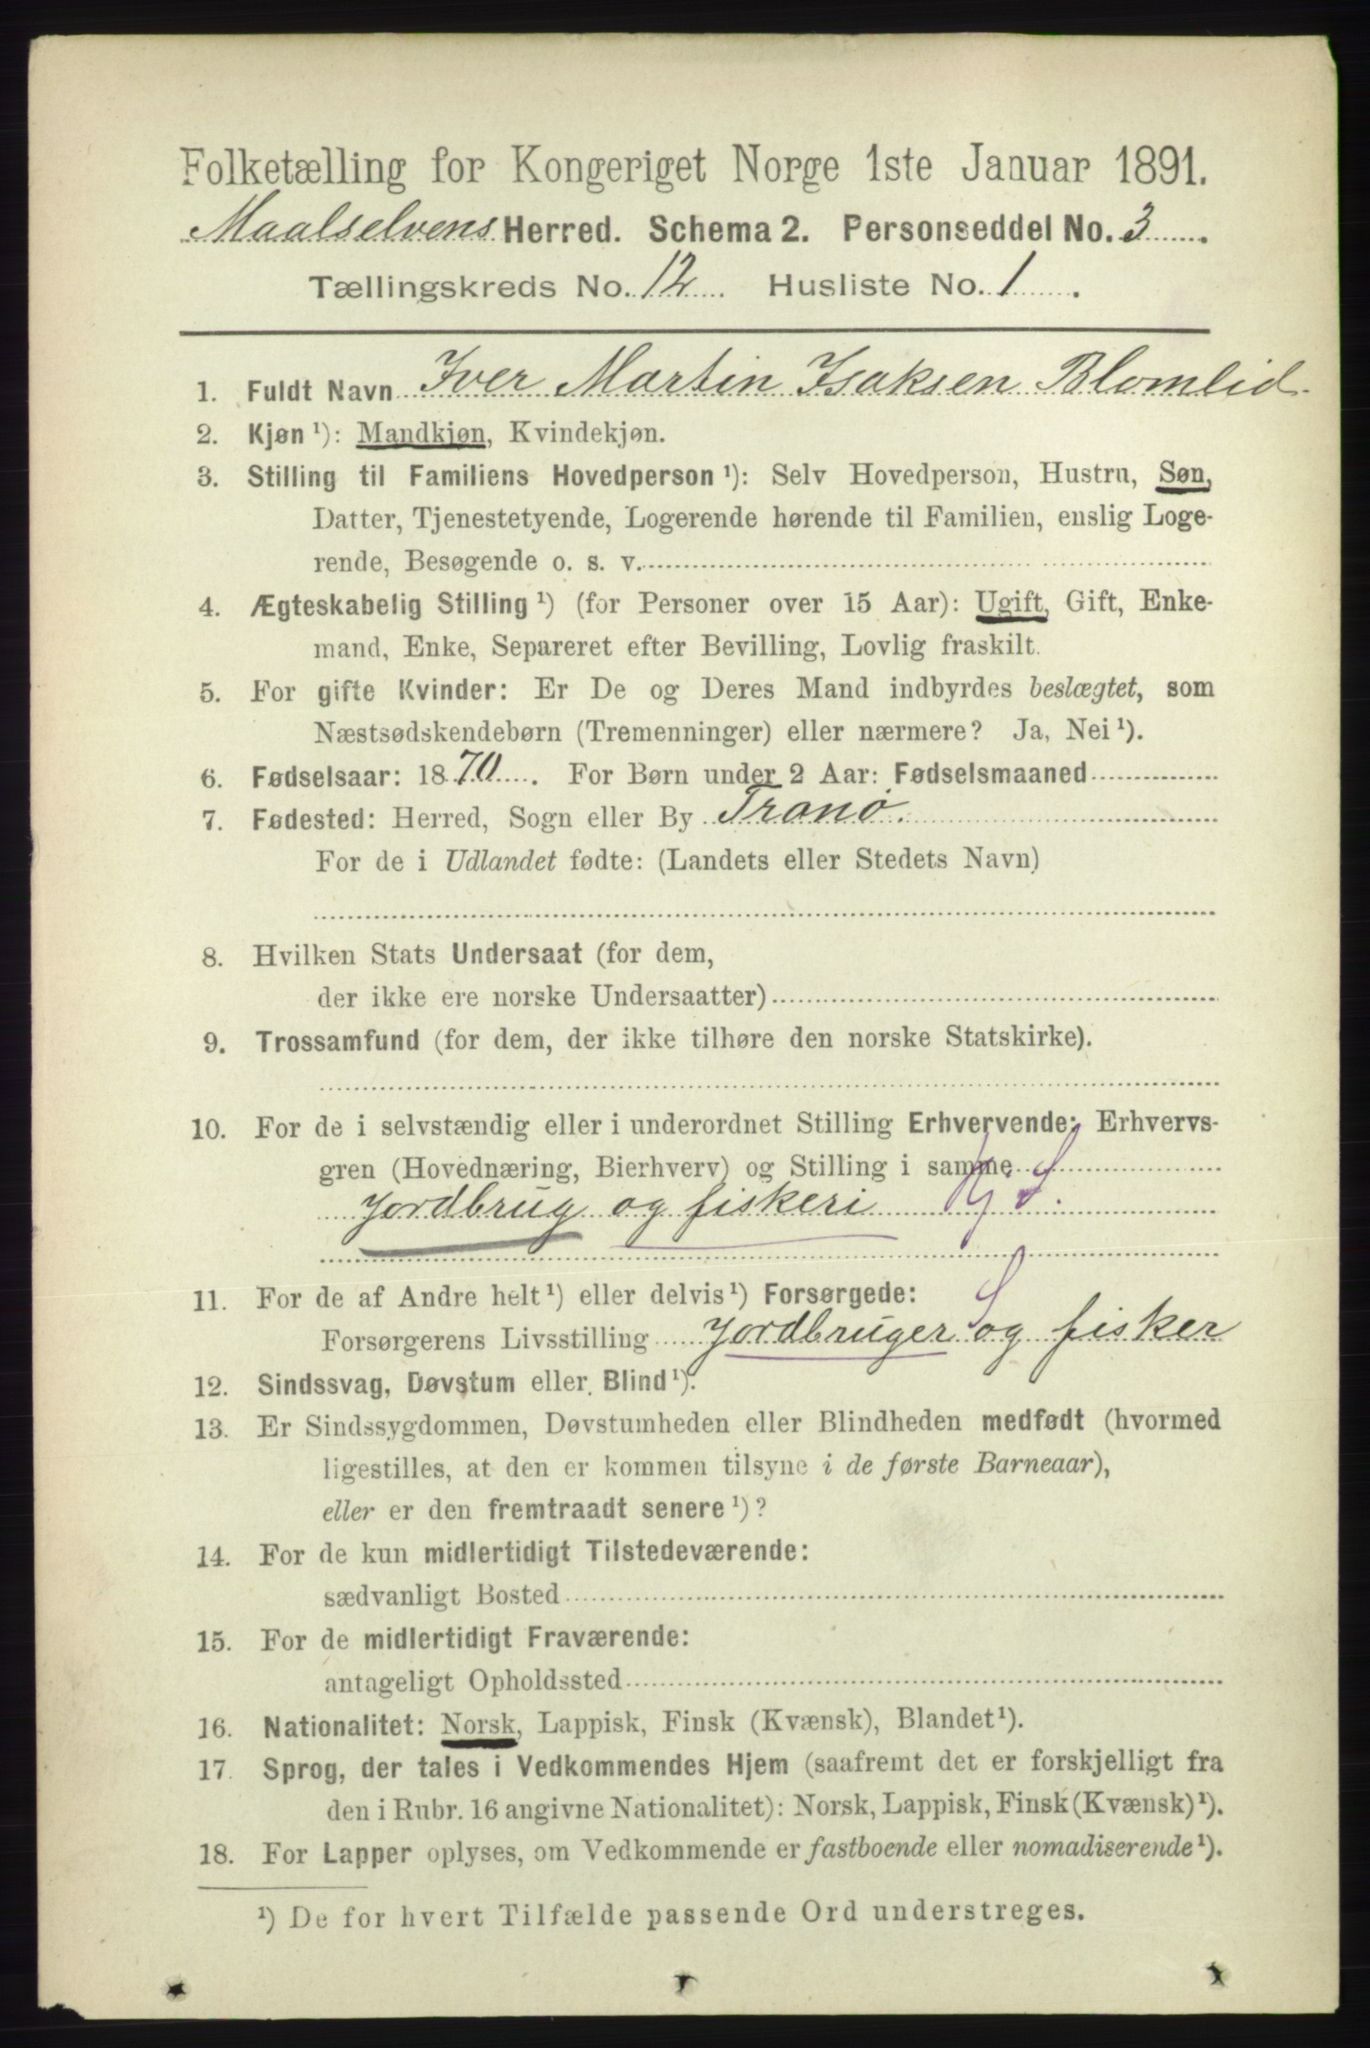 Folketælling for Kongeriget Norge 1ste Januar 1891.
Maalselvens Herred. Schema 2. Personseddel No. 3
Tællingskreds No. 12 Husliste No. 1
1. Fuldt Navn Iver Martin Isaksen Blomlid
2. Kjøn ¹): Mandkjøn, Kvindekjøn.
3. Stilling til Familiens Hovedperson ¹): Selv Hovedperson, Hustru, Søn,
Datter, Tjenestetyende, Logerende hørende til Familien, enslig Loge-
rende, Besøgende o. s. v.
4. Ægteskabelig Stilling ¹) (for Personer over 15 Aar): Ugift, Gift, Enke-
mand, Enke, Separeret efter Bevilling, Lovlig fraskilt.
5. For gifte Kvinder: Er De og Deres Mand indbyrdes beslægtet, som
Næstsødskendebørn (Tremenninger) eller nærmere? Ja, Nei ¹).
6. Fødselsaar: 1870. For Børn under 2 Aar: Fødselsmaaned
7. Fødested: Herred, Sogn eller By Tranø.
For de i Udlandet fødte: (Landets eller Stedets Navn)
8. Hvilken Stats Undersaat (for dem,
der ikke ere norske Undersaatter)
9. Trossamfund (for dem, der ikke tilhøre den norske Statskirke).
10. For de i selvstændig eller i underordnet Stilling Erhvervende: Erhvervs-
gren (Hovednæring, Bierhverv) og Stilling i samme
Jordbrug og fiskeri S.
11. For de af Andre helt ¹) eller delvis ¹) Forsørgede: S
Forsørgerens Livsstilling Jordbruger og fisker
12. Sindssvag, Døvstum eller Blind ¹).
13. Er Sindssygdommen, Døvstumheden eller Blindheden medfødt (hvormed
ligestilles, at den er kommen tilsyne i de første Barneaar),
eller er den fremtraadt senere ¹)?
14. For de kun midlertidigt Tilstedeværende:
sædvanligt Bosted
15. For de midlertidigt Fraværende:
antageligt Opholdssted
16. Nationalitet: Norsk, Lappisk, Finsk (Kvænsk), Blandet ¹).
17. Sprog, der tales i Vedkommendes Hjem (saafremt det er forskjelligt fra
den i Rubr. 16 angivne Nationalitet): Norsk, Lappisk, Finsk (Kvænsk) ¹).
18. For Lapper oplyses, om Vedkommende er fastboende eller nomadiserende ¹).
¹) De for hvert Tilfælde passende Ord understreges.